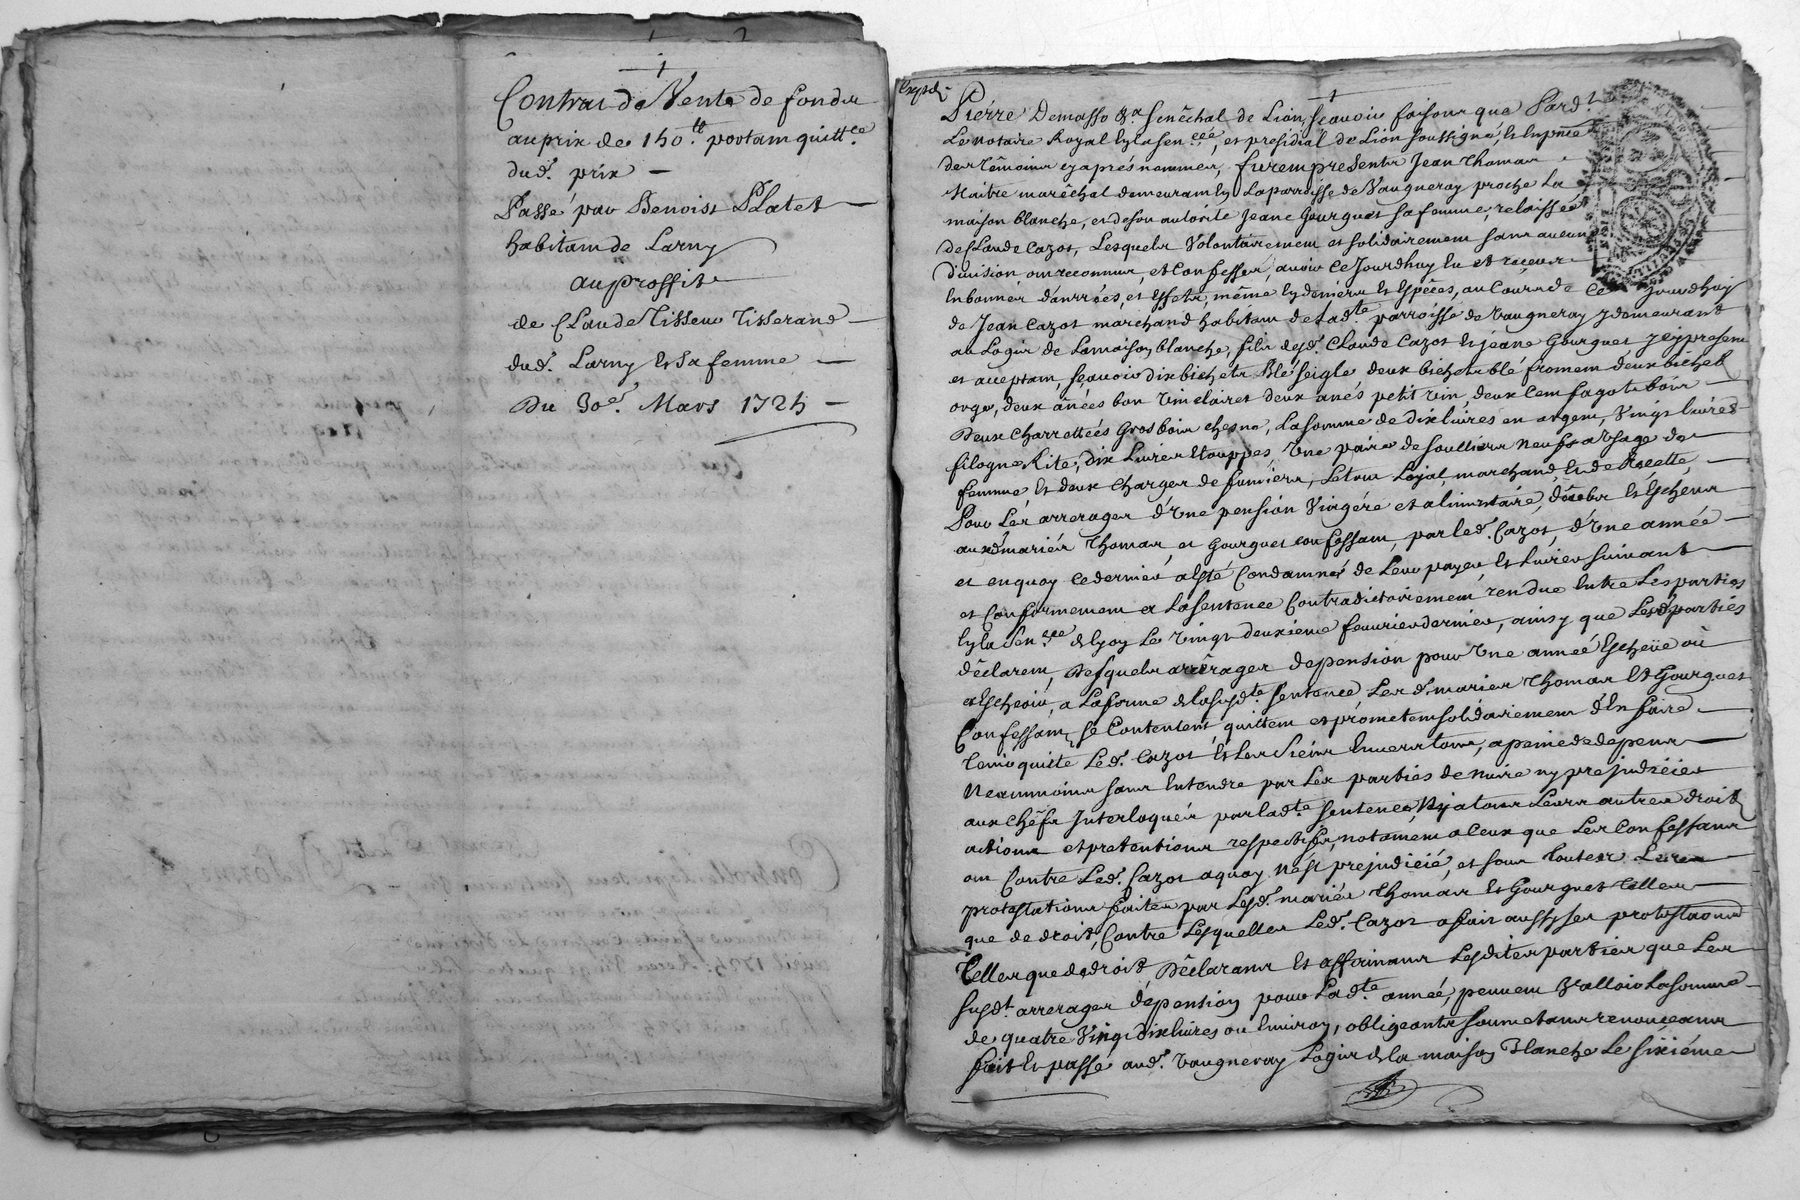 Contrat de Vente de fondz
au prix de 150.tt portam quittce.
dud. prix —
Passé par Benoist PLatet —
habitam de Larny
au proffit
de CLaude Tisseur Tisserand —
dud. Larny et sa femme —
Du 30e. Mars 1725 —
Expédi.
Pierre Demasso Sénéchal de Lion, sçavoir faisons que Pardt.
Le notaire Royal en la sen.cée, et presidial de Lion soussigné, et en pnce
des témoins cy après nommes, furem presents Jean Thomas
Maitre maréchal demeuram en La parroisse de Vaugneray proche La
maison blanche, et de son autorité Jeane Gourguet sa femme, relaissée
de Claude Cazot, Lesquels Volontairemem et solidairemem sans aucune
division om reconnus, et Confessés, avoir ce Jourdhuy Eu et reçeus
En bonnes danrrées, et Effets, même En deniers et Espéces, au Cours de ce Jourdhuy
de Jean Cazot marchand habitam de Ladte parroisse de Vaugneray y demeurant
au Logis de La maison blanche, fils desd. Claude Cazot et jeane Gourguet jcy presem
et acceptam, sçavoir dix bichets blé seigle deux bichets blé fromem deux bichets
orge, deux ânées bon vin clairet deux anés petit vin, deux Cem fagots bois
Deux Charrettées Gros bois chesne, La somme de dix livres en argem, Vingt livres
filogne Rite, dix Livres Etouppes, Une paire de soulliers neufs a Usage de
femme et deux Charges de fumiers, Le tout Loyal, marchand, et de Recette,
Pour Les arrerages d'Une pension Viagére et alimentaire, dûebs et Escheus
auxd mariés Thomas, et Gourguet confessam, par led. Cazot, d'Une année
et en quoy ce dernier a Esté Condamné de Leur payer et Livrer suivant
et Conformemem a La sentence Contradictoiremem rendue Entre Les parties
En la Sen.cée de Lyon Le Vingt deuxieme fevrier dernier, ainsy que Lesd parties
déclarem, Desquels arrérages de pension pour Une année Escheüe ou
a Escheoir, a La forme de la susdte sentence, Les d. mariés Thomas et Gourguet
Confessam, se Contentem, quittem et promettem solidairemem d'En faire
Tenir quite Led. Cazot et Les siens Envers tous, a peine de depens
Neammoins sans Entendre par Les parties de nuire ny prejudicier
aux chéfs Interloqués par Ladte sentence Ny a tous Leurs autres droits
actions et pretentions respectifs, notamem a Ceux que Les Confessans
om Contre Led. Cazot a quoy N'est prejudicié, et sous toutes Leurs
protestations faites par Lesd. mariés Thomas et Gourguet telles
que de droit, Contre Lesquelles Led. Cazot a fait aussy ses protestaons
Telles que de droit, Déclarans et affirmans Lesdites parties que Les
susdt. arrerages de pension pour Ladte année, peuvem Valloir La somme
de quatre Vingt dix livres ou Environ, obligeants soumettans renonceans
fait et passé aud. Vaugneray Logis de la maison Blanche Le sixiéme